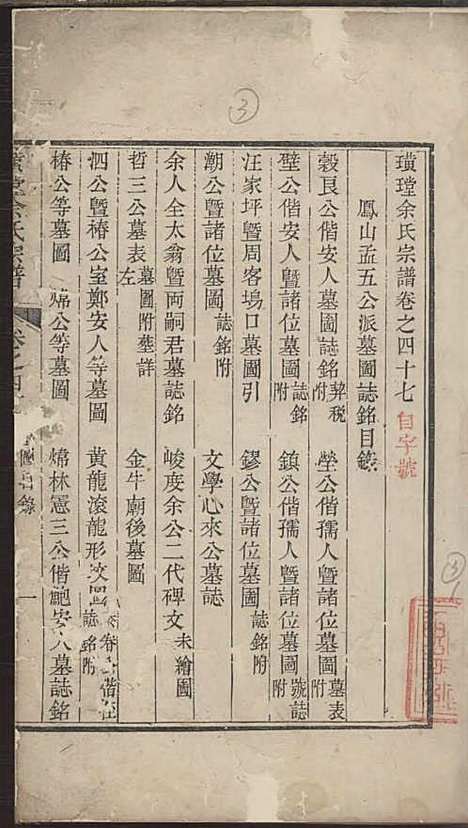 璜瑝余氏宗譜卷之四十七 自字號
鳳山孟五公派墓圖誌銘目錄
穀艮公偕安人墓圖誌銘契税附 瑩公偕孺人暨諸位墓圖墓表附
璧公偕安人暨諸位墓圖誌銘附 鎮公偕孺人暨諸位墓圖號誌附
汪家坪暨周客塲口墓圖引 鏐公暨諸位墓圖誌銘附
潮公暨諸位墓圖誌銘附 文學心來公墓誌
余人全太翁暨両嗣君墓誌銘 峻庋余公二代碑文未繪圖
哲三公墓表墓圖附塟詳左 金牛廟後墓圖
泗公暨椿公室鄭安人等墓圖 黄龍滚龍形 誌銘附
椿公等墓圖 公等墓圖 林憲三公偕鮑安人墓誌銘
余氏宗譜 目錄 一
③
③